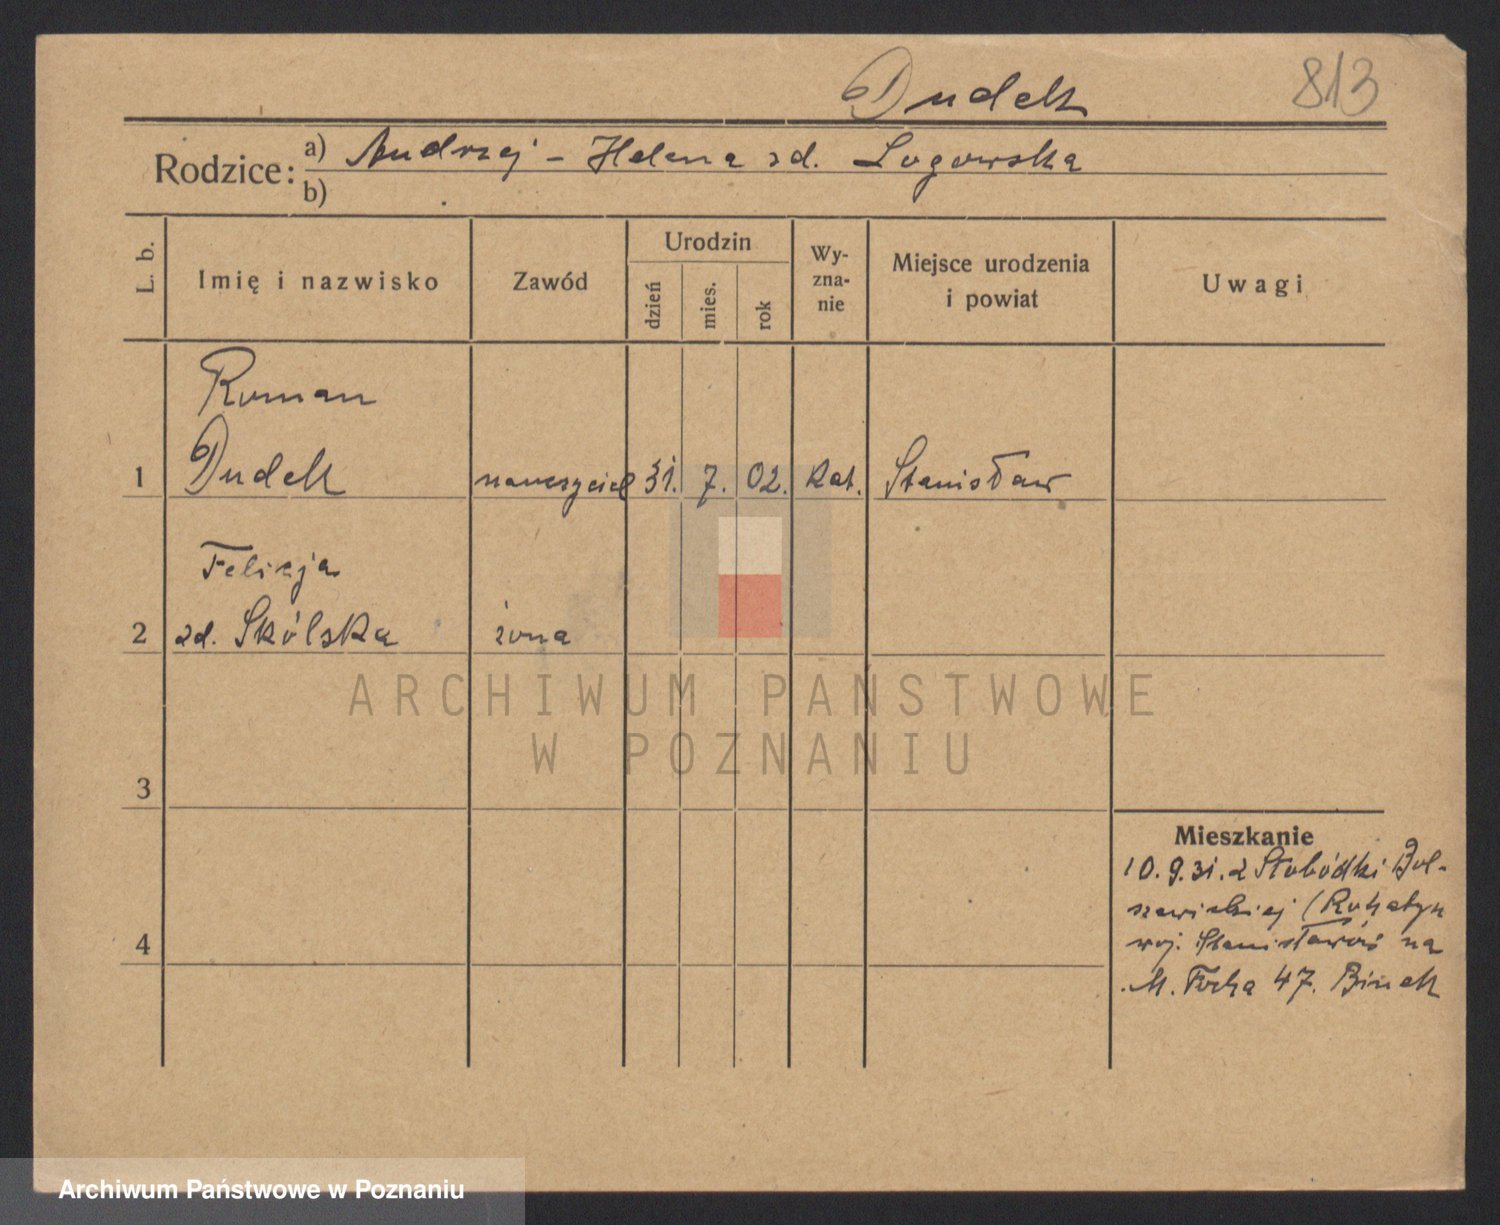 Dudek 813
Rodzice: a) Andrzej - Helena zd. Logowska
b)
L. b. Imię i nazwisko Zawód Urodzin dzień mies. rok Wy-zna-nie Miejsce urodzenia i powiat Uwagi
Roman
1 Dudek nauczyciel 31. 7. 02. kat. Stanisław
Felicja
2 zd. Skólska żona
ARCHIWUM PAŃSTWOWE
W POZNANIU
3
Mieszkanie
10.9.31. z Słobódki Bol-
szowieckiej (Rohatyn
4 woj. Stanisławów na
M. Focha 47. Binek
Archiwum Państwowe w Poznaniu